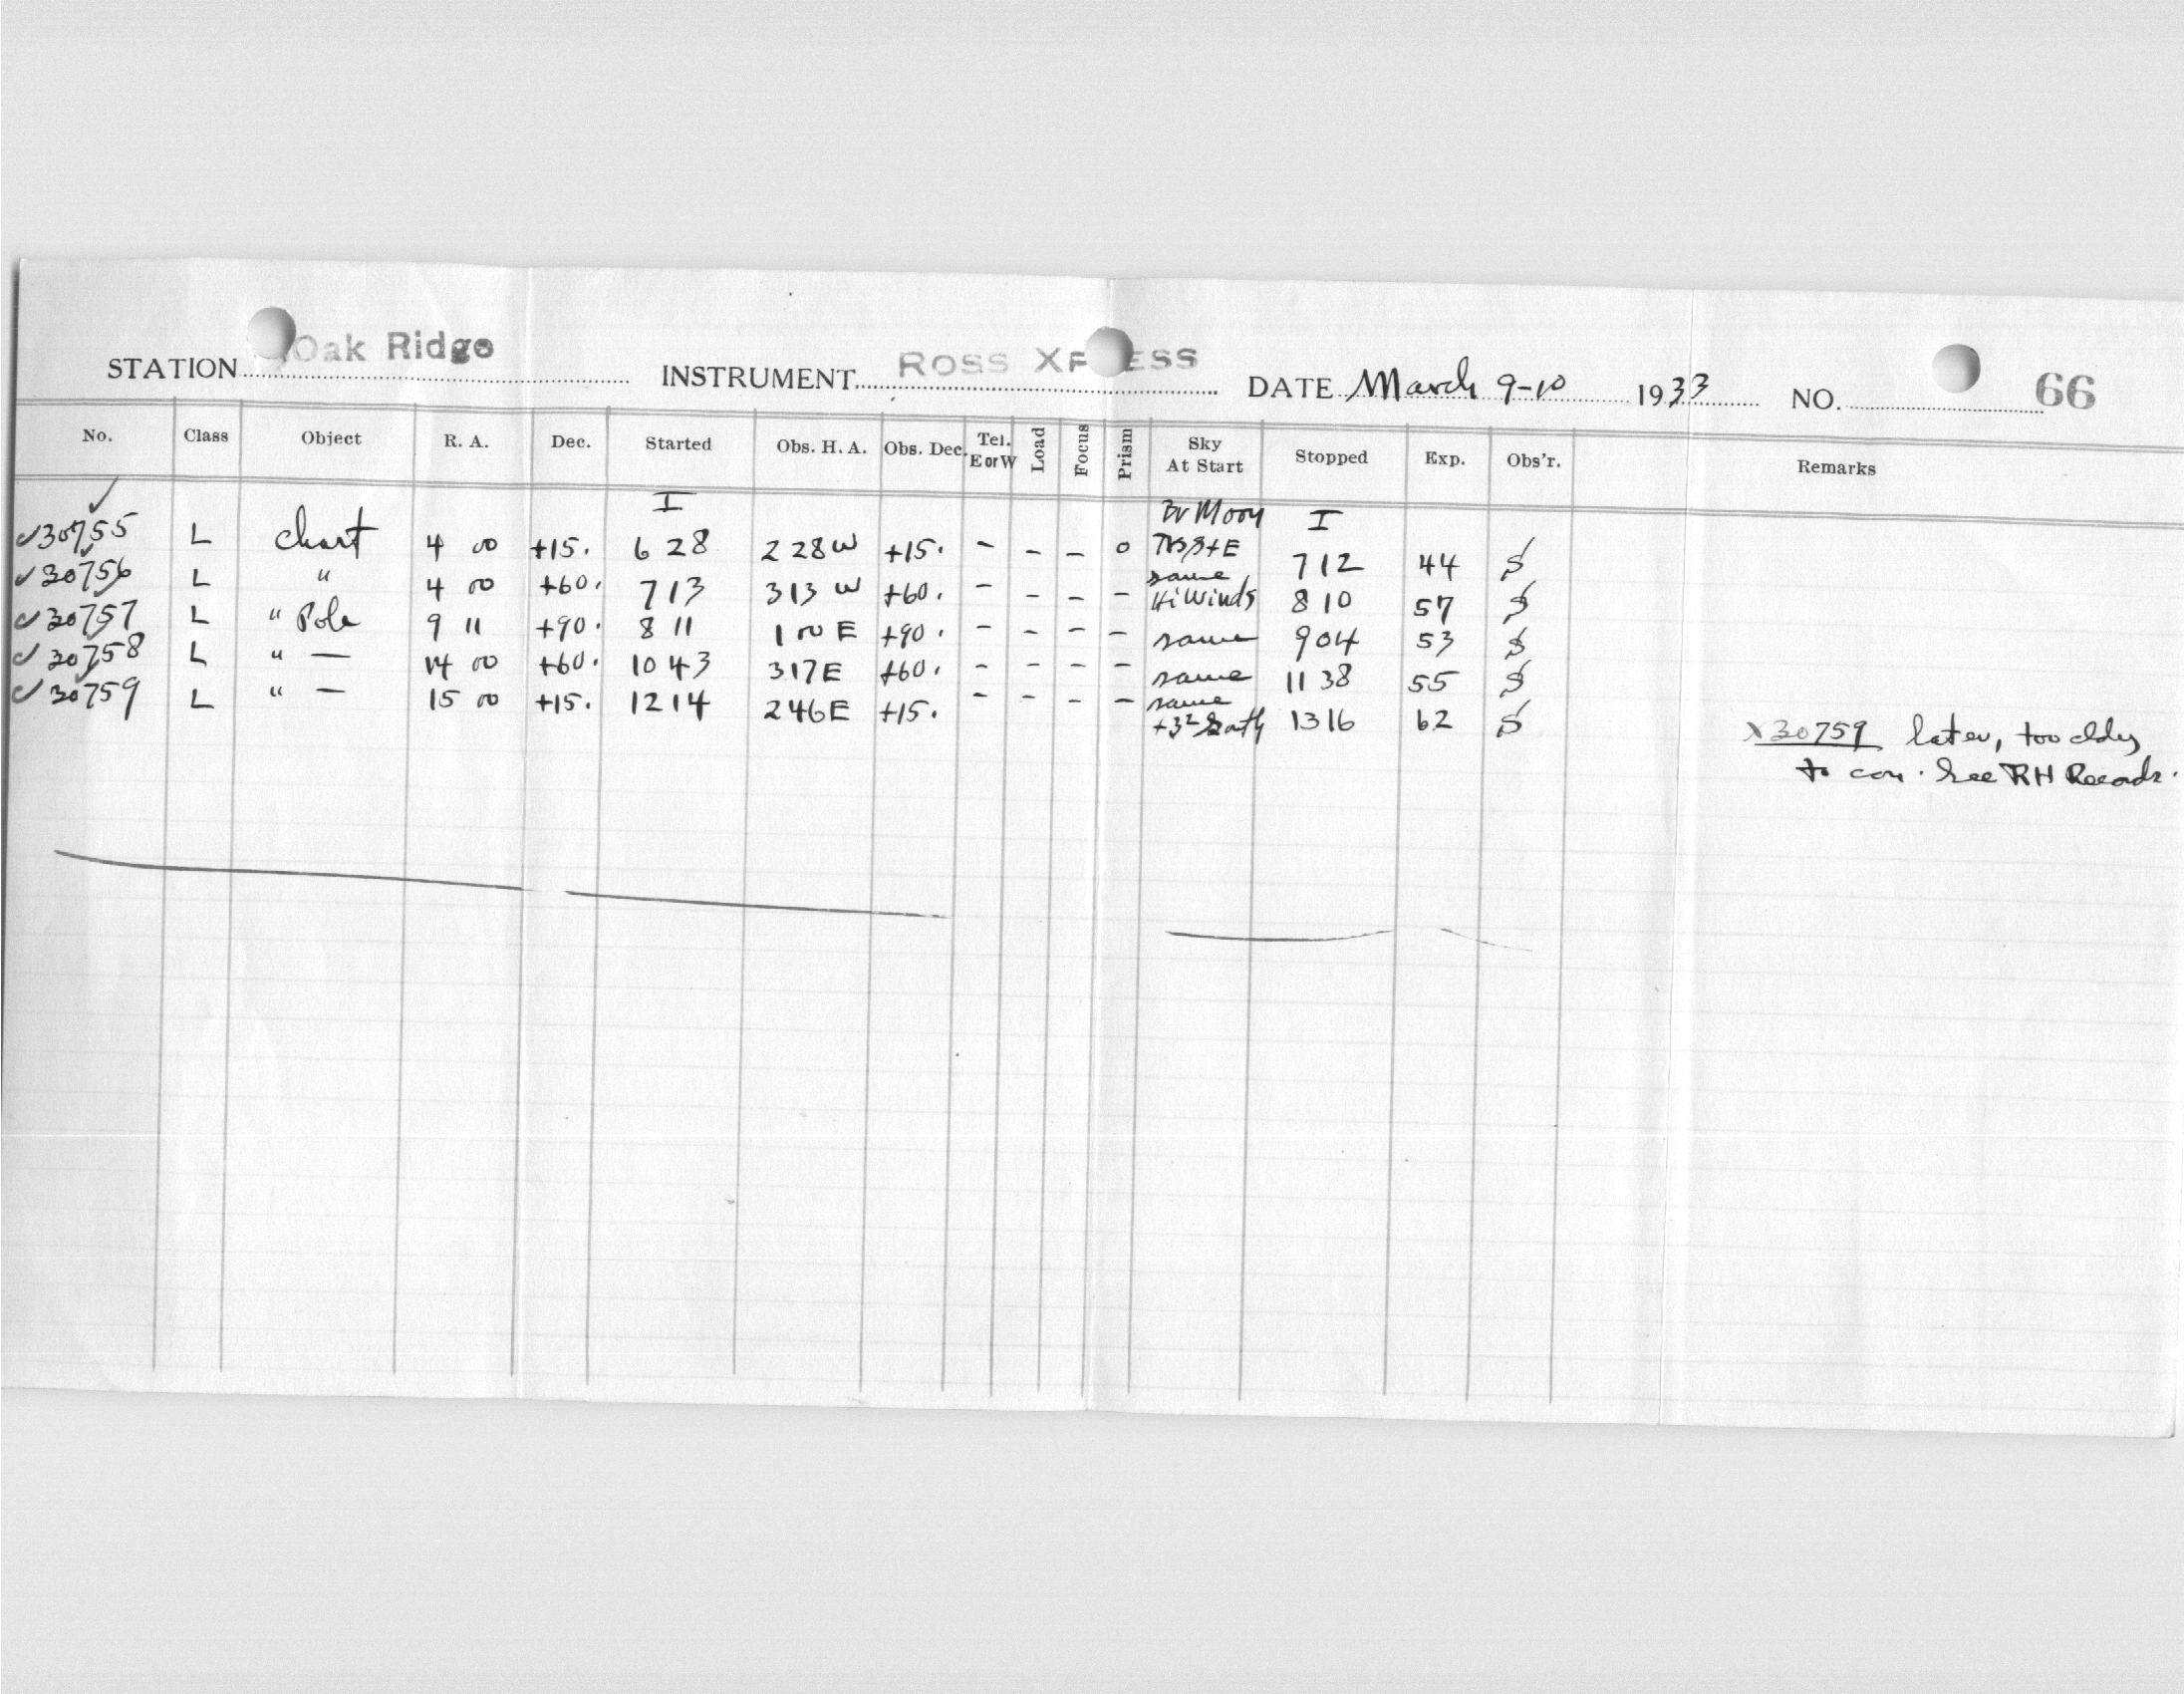 STATION Oak Ridge INSTRUMENT ROSS XP ESS DATE March 9-10 1933 NO. 66
No. Class Object R. A. Dec. Started Obs. H. A. Obs. Dec. Tel. E or W Load Focus Prism Sky At Start Stopped Exp. Obs'r. Remarks
I Br Moon I
✓30755 L Chart 4 00 +15. 6 28 2 28 W +15. - - - 0 712 44 S
✓30756 L " 4 00 +60. 713 313 W +60. - - - - same Hi Winds 8 10 57 S
✓30757 L " Pole 9 11 +90. 8 11 1 00 E +90. - - - - same 904 53 S
✓30758 L " — 14 00 +60. 10 43 317 E +60. - - - - same 11 38 55 S
✓30759 L " — 15 00 +15. 12 14 246 E +15. - - - - same 1316 62 S
X 30759 later, too cldy
to con. See RH Records.